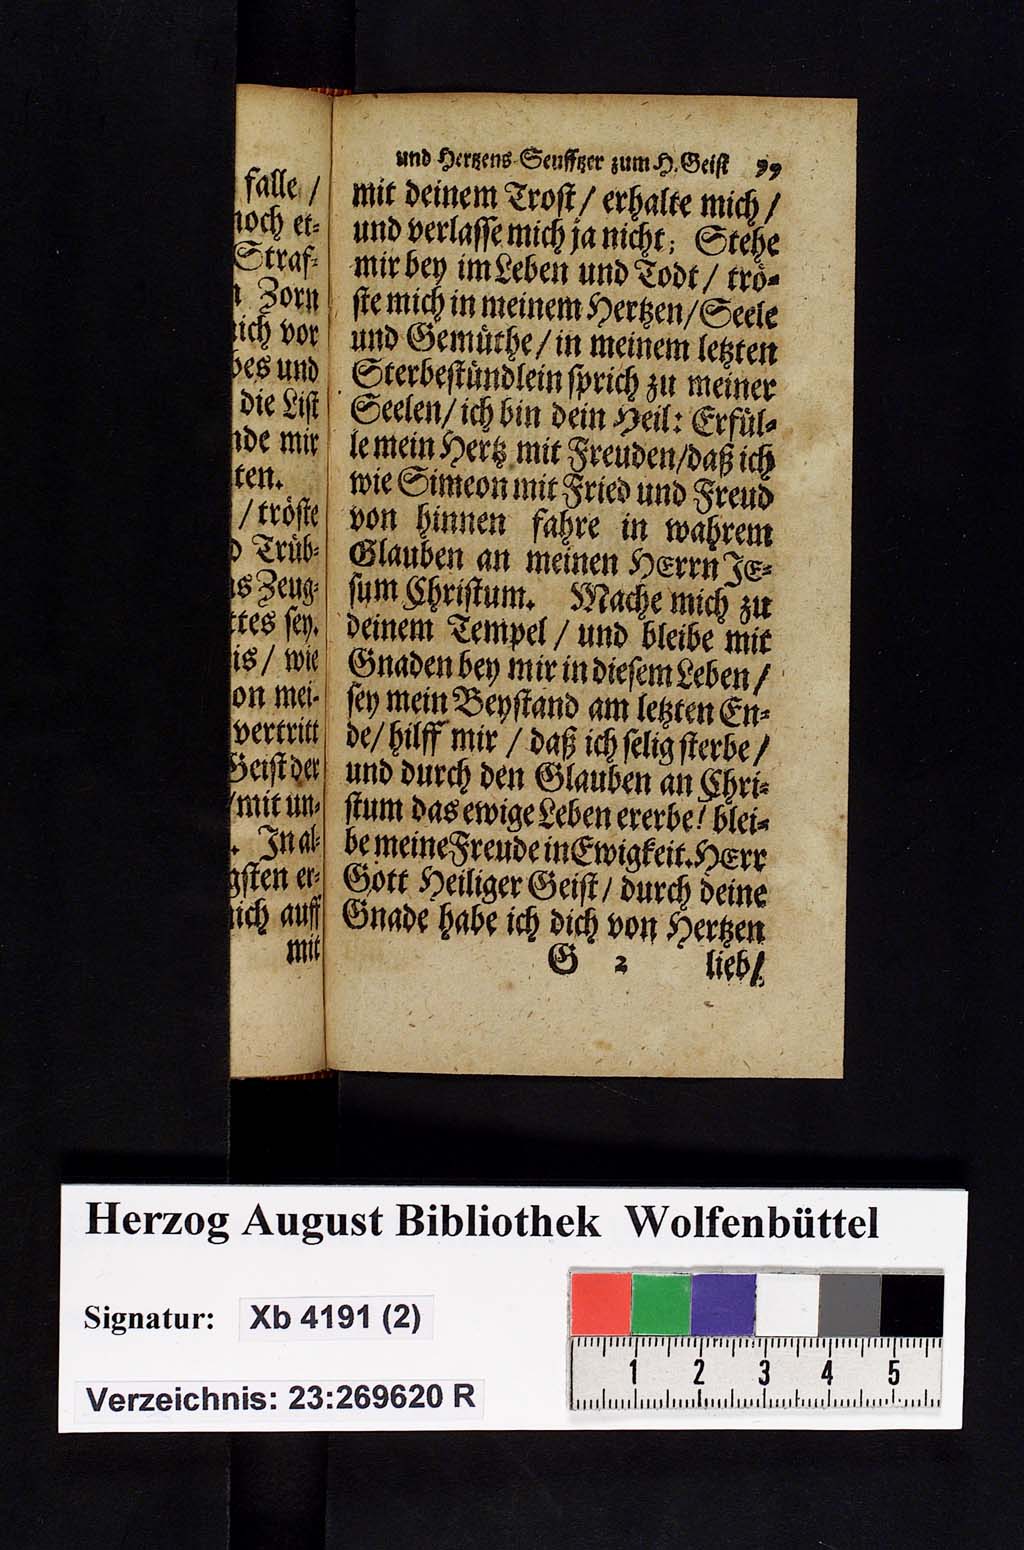 falle /
noch et-
Straf-
Zorn
mich vor
bes und
die List
nde mir
ten.
/ tröste
Trüb-
Zeug-
ttes sey.
is / wie
on mei-
vertritt
Geist der
/ mit un-
. In al-
gsten er-
mich auff
mit
und Hertzens-Seufftzer zum H. Geist 99
mit deinem Trost / erhalte mich /
und verlasse mich ja nicht; Stehe
mir bey im Leben und Todt / trö-
ste mich in meinem Hertzen / Seele
und Gemüthe / in meinem letzten
Sterbestündlein sprich zu meiner
Seelen / ich bin dein Heil: Erfül-
le mein Hertz mit Freuden / daß ich
wie Simeon mit Fried und Freud
von hinnen fahre in wahrem
Glauben an meinen HErrn JE-
sum Christum. Mache mich zu
deinem Tempel / und bleibe mit
Gnaden bey mir in diesem Leben /
sey mein Beystand am letzten En-
de / hilff mir / daß ich selig sterbe /
und durch den Glauben an Chri-
stum das ewige Leben ererbe! blei-
be meine Freude in Ewigkeit. HErr
Gott Heiliger Geist / durch deine
Gnade habe ich dich von Hertzen
G 2 lieb /
Herzog August Bibliothek Wolfenbüttel
Signatur: Xb 4191 (2)
Verzeichnis: 23:269620 R
1 2 3 4 5